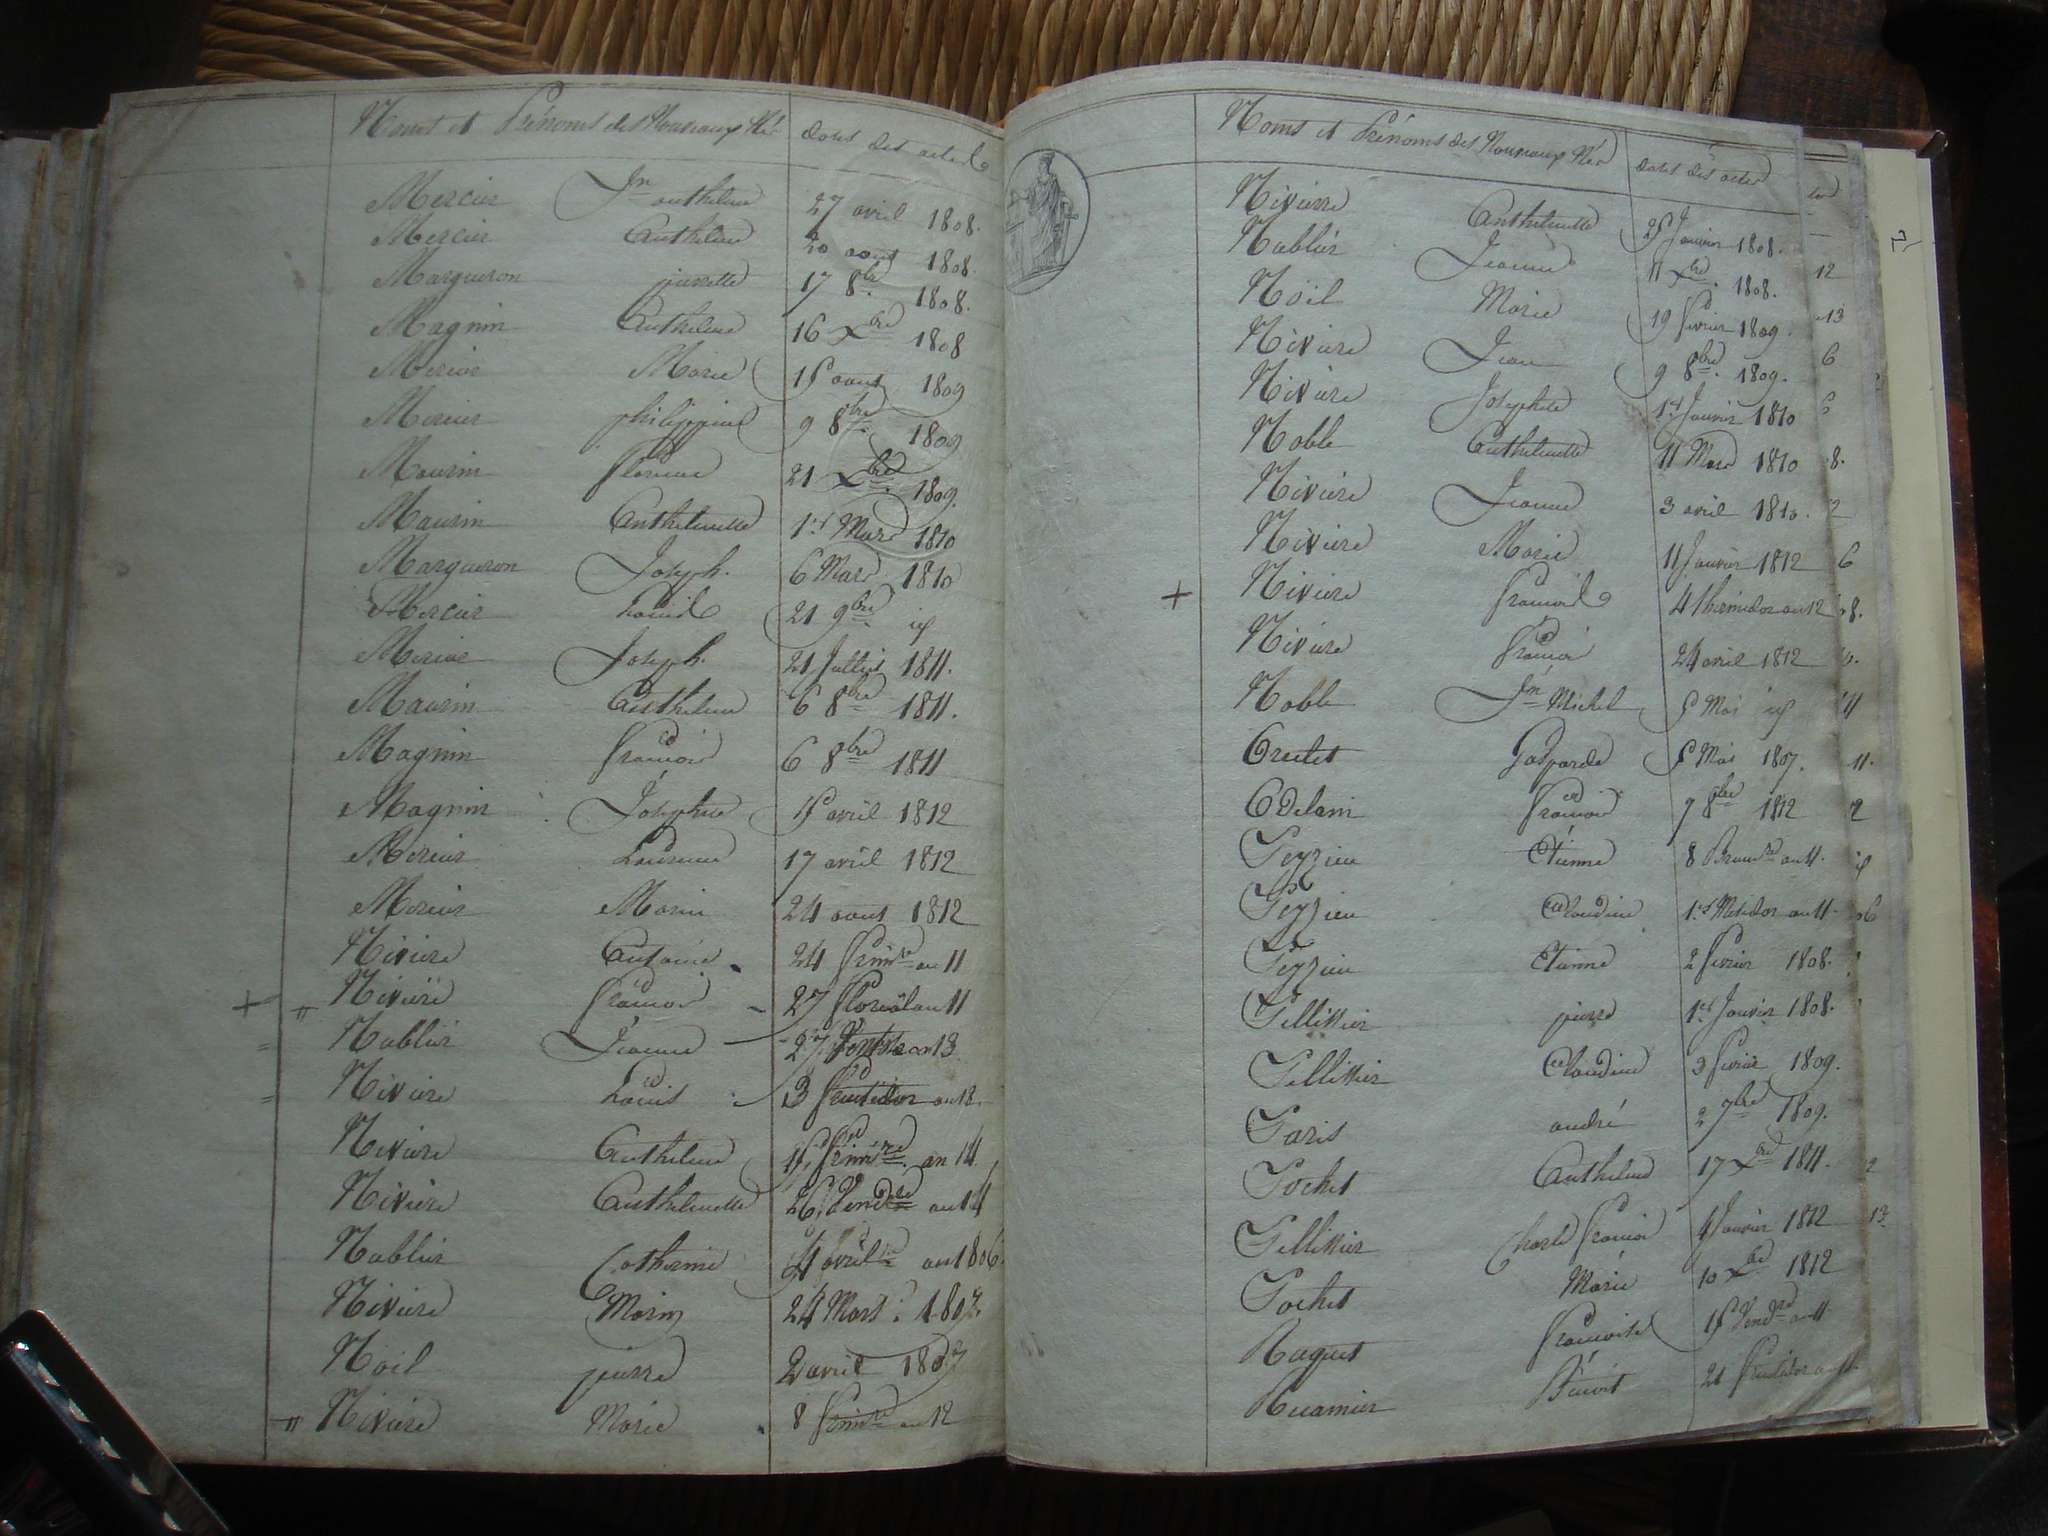 Noms et Prénoms des Nouveaux Nés dates des actes
Mercier Jn anthelme 27 avril 1808.
Mercier Anthelme 20 aout 1808.
Margueron pierrette 17 8bre 1808.
Magnin Anthelme 16 Xbre 1808
Mercier Marie 15 aout 1809
Mercier philippine 9 8bre 1809
Maurin 21 Xbre 1809.
Maurin Anthelmette 1er Mars 1810
Margueron Joseph. 6 Mars 1810
Mercier Louis 21 9bre id
Mercier Joseph. 21 Juillet 1811.
Maurin Anthelme 6 8bre 1811.
Magnin francois 6 8bre 1811
Magnin Josephte 15 avril 1812
Mercier Laurence 17 avril 1812
Mercier Marie 24 aout 1812
Niviere Antoine 24 frimre an 11
+ " Niviere francois 27 floréal an 11
= Nublier Jeanne 27 an 13
= Niviere Louis 3 fructidor an 13.
Niviere Anthelme 15 frimre. an 14
Niviere Anthelmette 26 Vendre an 14
Nublier Catherine avril an 1806
Niviere Marie 24 Mars 1807.
Noil pierre 2 avril 1807
" Niviere Marie 8 frimre an 12
Noms et Prénoms des Nouveaux Nés dates des actes
Nivierre Anthelmette 25 Janvier 1808.
Nublier Jeanne 11 Xbre. 1808.
Noil Marie 19 fevrier 1809.
Niviere Jean 9 8bre. 1809.
Niviere Josephte 1er Janvier 1810
Noble Anthelmette 11 Mars 1810
Niviere Jeanne 3 avril 1810.
Niviere Marie 11 Janvier 1812
+ Niviere francois 4 thermidor an 12
Niviere francois 24 avril 1812
Noble Jn Michel 5 Mai id
Gasparde 5 Mai 1807.
Odelain francois 7 8bre 1812
Peyzieu Etienne 8 Brumre an 11.
Peyzieu Claudine 1er Messidor an 11.
Peyzieu Etienne 2 fevrier 1808.
Pellissier pierre 1er Janvier 1808.
Pellissier Claudine 3 fevrier 1809.
Paris andré 2 7bre 1809.
Pochet Anthelme 17 Xbre 1811.
Pellissier Charle francois 4 Janvier 1812
Pochet Marie 10 Xbre 1812
Ruquet francoise 15 Vendre an 11.
Recamier Benoit 21 fructidor an 11.